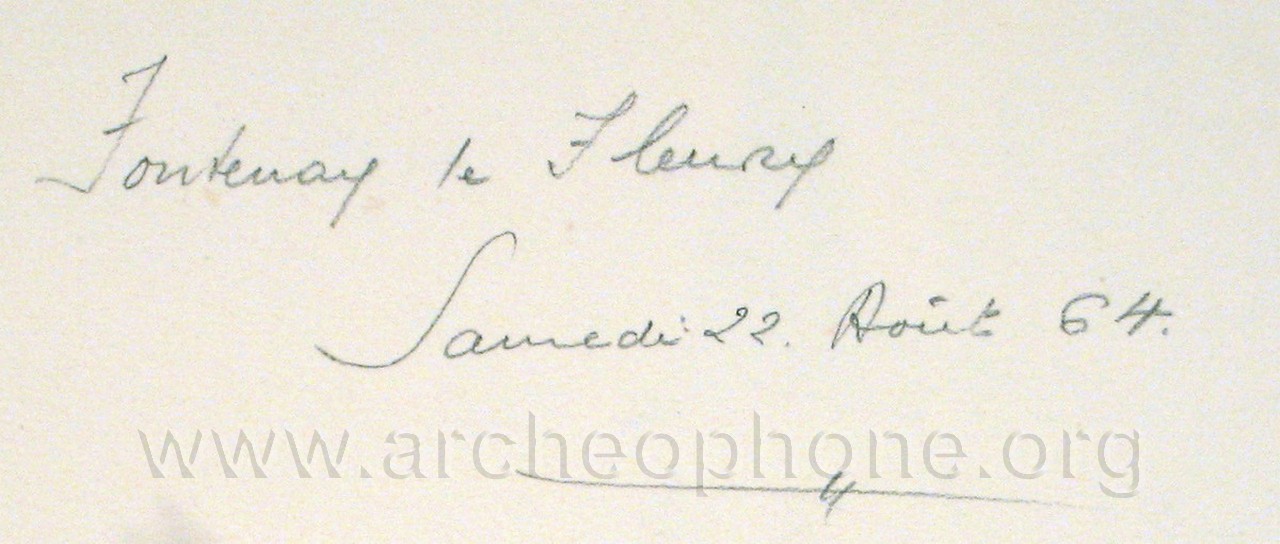 Fontenay le Fleury
Samedi 22. Août 64.
www.archeophone.org